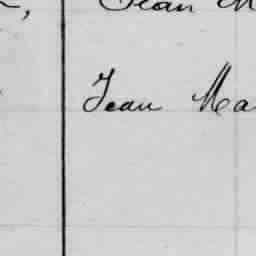 Jean M
Jean Ma